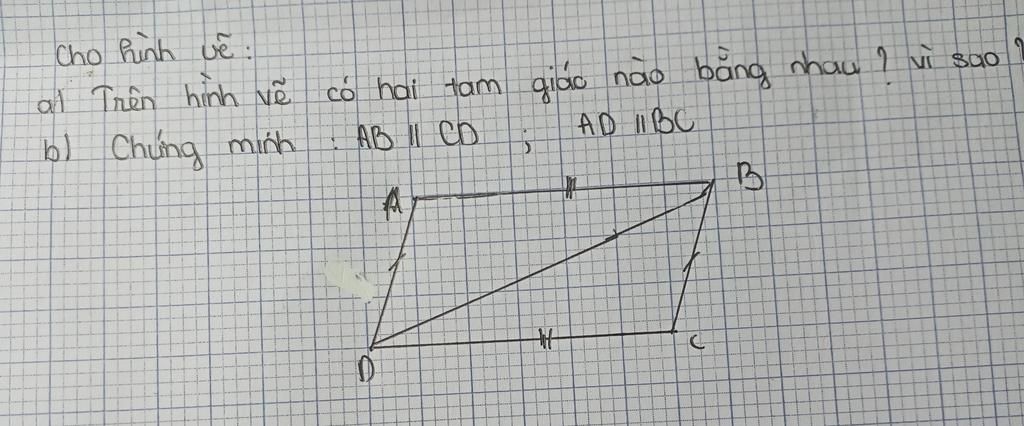 Cho hình vẽ:
a) Trên hình vẽ có hai tam giác nào bằng nhau? vì sao?
b) Chứng minh : AB // CD ; AD // BC
A B
D C